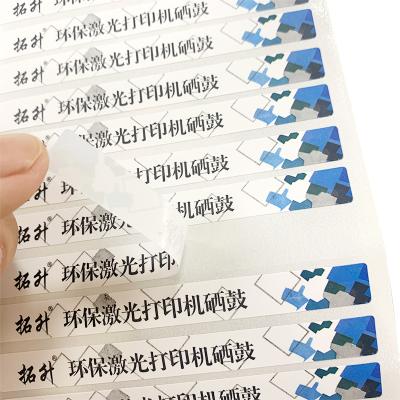 环保激光打印机硒鼓
拓升 环保激光打印机硒鼓
拓升 环保激光打印机硒鼓
拓升 环保激光打印机硒鼓
拓升 环保激光打印机硒鼓
环保激光打印机硒鼓
拓升® 环 打印机硒鼓
拓升® 环 机硒鼓
拓升® 环保激光打印
拓升® 环保激光打印机硒鼓
拓升® 环保激光打印机硒鼓
拓升® 环保激光打印机硒鼓